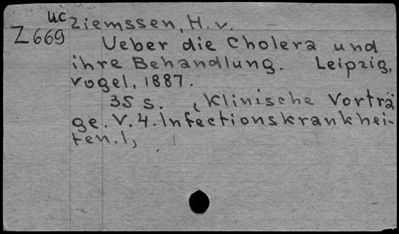 uc
Z669
Ziemssen, H. v.
Ueber die Cholera und
ihre Behandlung. Leipzig,
Vogel, 1887.
35 S. (Klinische Vorträ
ge. V. 4. Infectionskrankhei-
ten. 1,